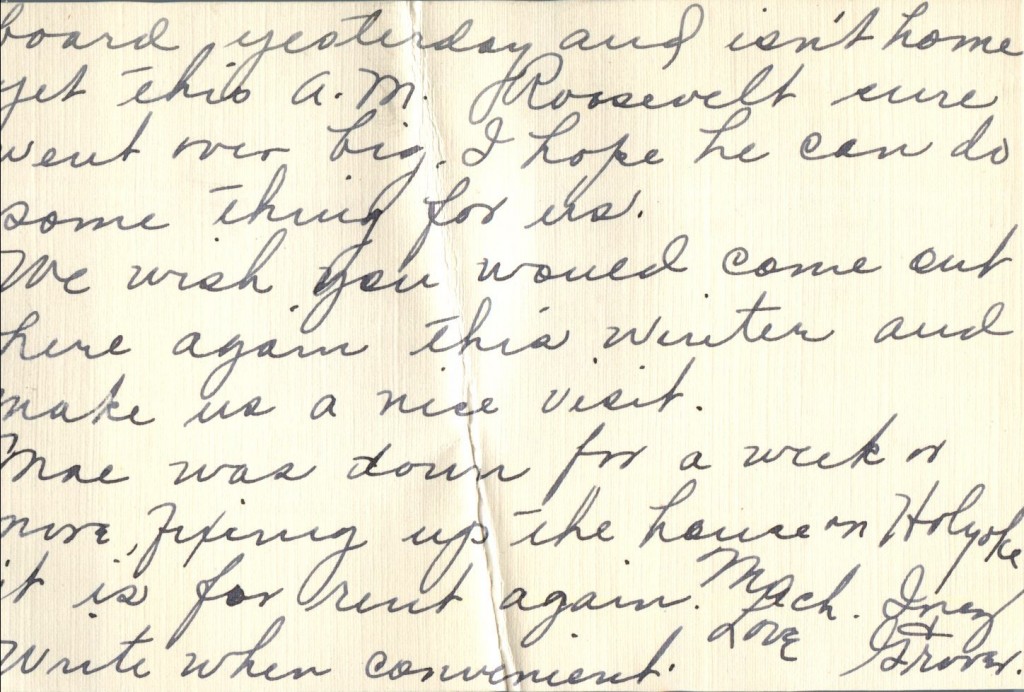 board yesterday and isn't home
yet this A.M. Roosevelt sure
went over big. I hope he can do
some thing for us.
We wish you would come out
here again this winter and
make us a nice visit.
Mae was down for a week or
more, fixing up the house on Holyoke
it is for rent again. Much. Inez
Write when convenient. Love + Grover.